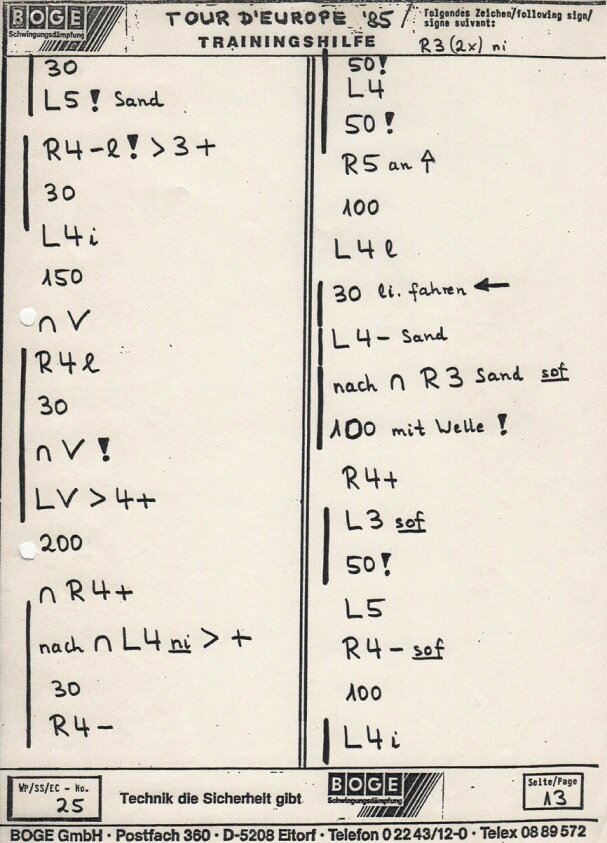 BOGE
Schwingungsdämpfung
TOUR D'EUROPE '85
TRAININGSHILFE
Folgendes Zeichen/following sign/
signe suivant:
R3 (2x) ni
30
L5 ! Sand
R4 - l ! > 3 +
30
L4 i
150
∩ V
R4 l
30
∩ V !
LV > 4 +
200
∩ R4 +
nach ∩ L4 ni > +
30
R4 -
50!
L4
50!
R5 an ↑
100
L4 l
30 li. fahren ←
L4 - Sand
nach ∩ R3 Sand sof
100 mit Welle !
R4 +
L3 sof
50!
L5
R4 - sof
100
L4 i
WP/SS/EC - No.
25
Technik die Sicherheit gibt
BOGE
Schwingungsdämpfung
Seite/Page
13
BOGE GmbH · Postfach 360 · D-5208 Eitorf · Telefon 0 22 43/12-0 · Telex 08 89 572